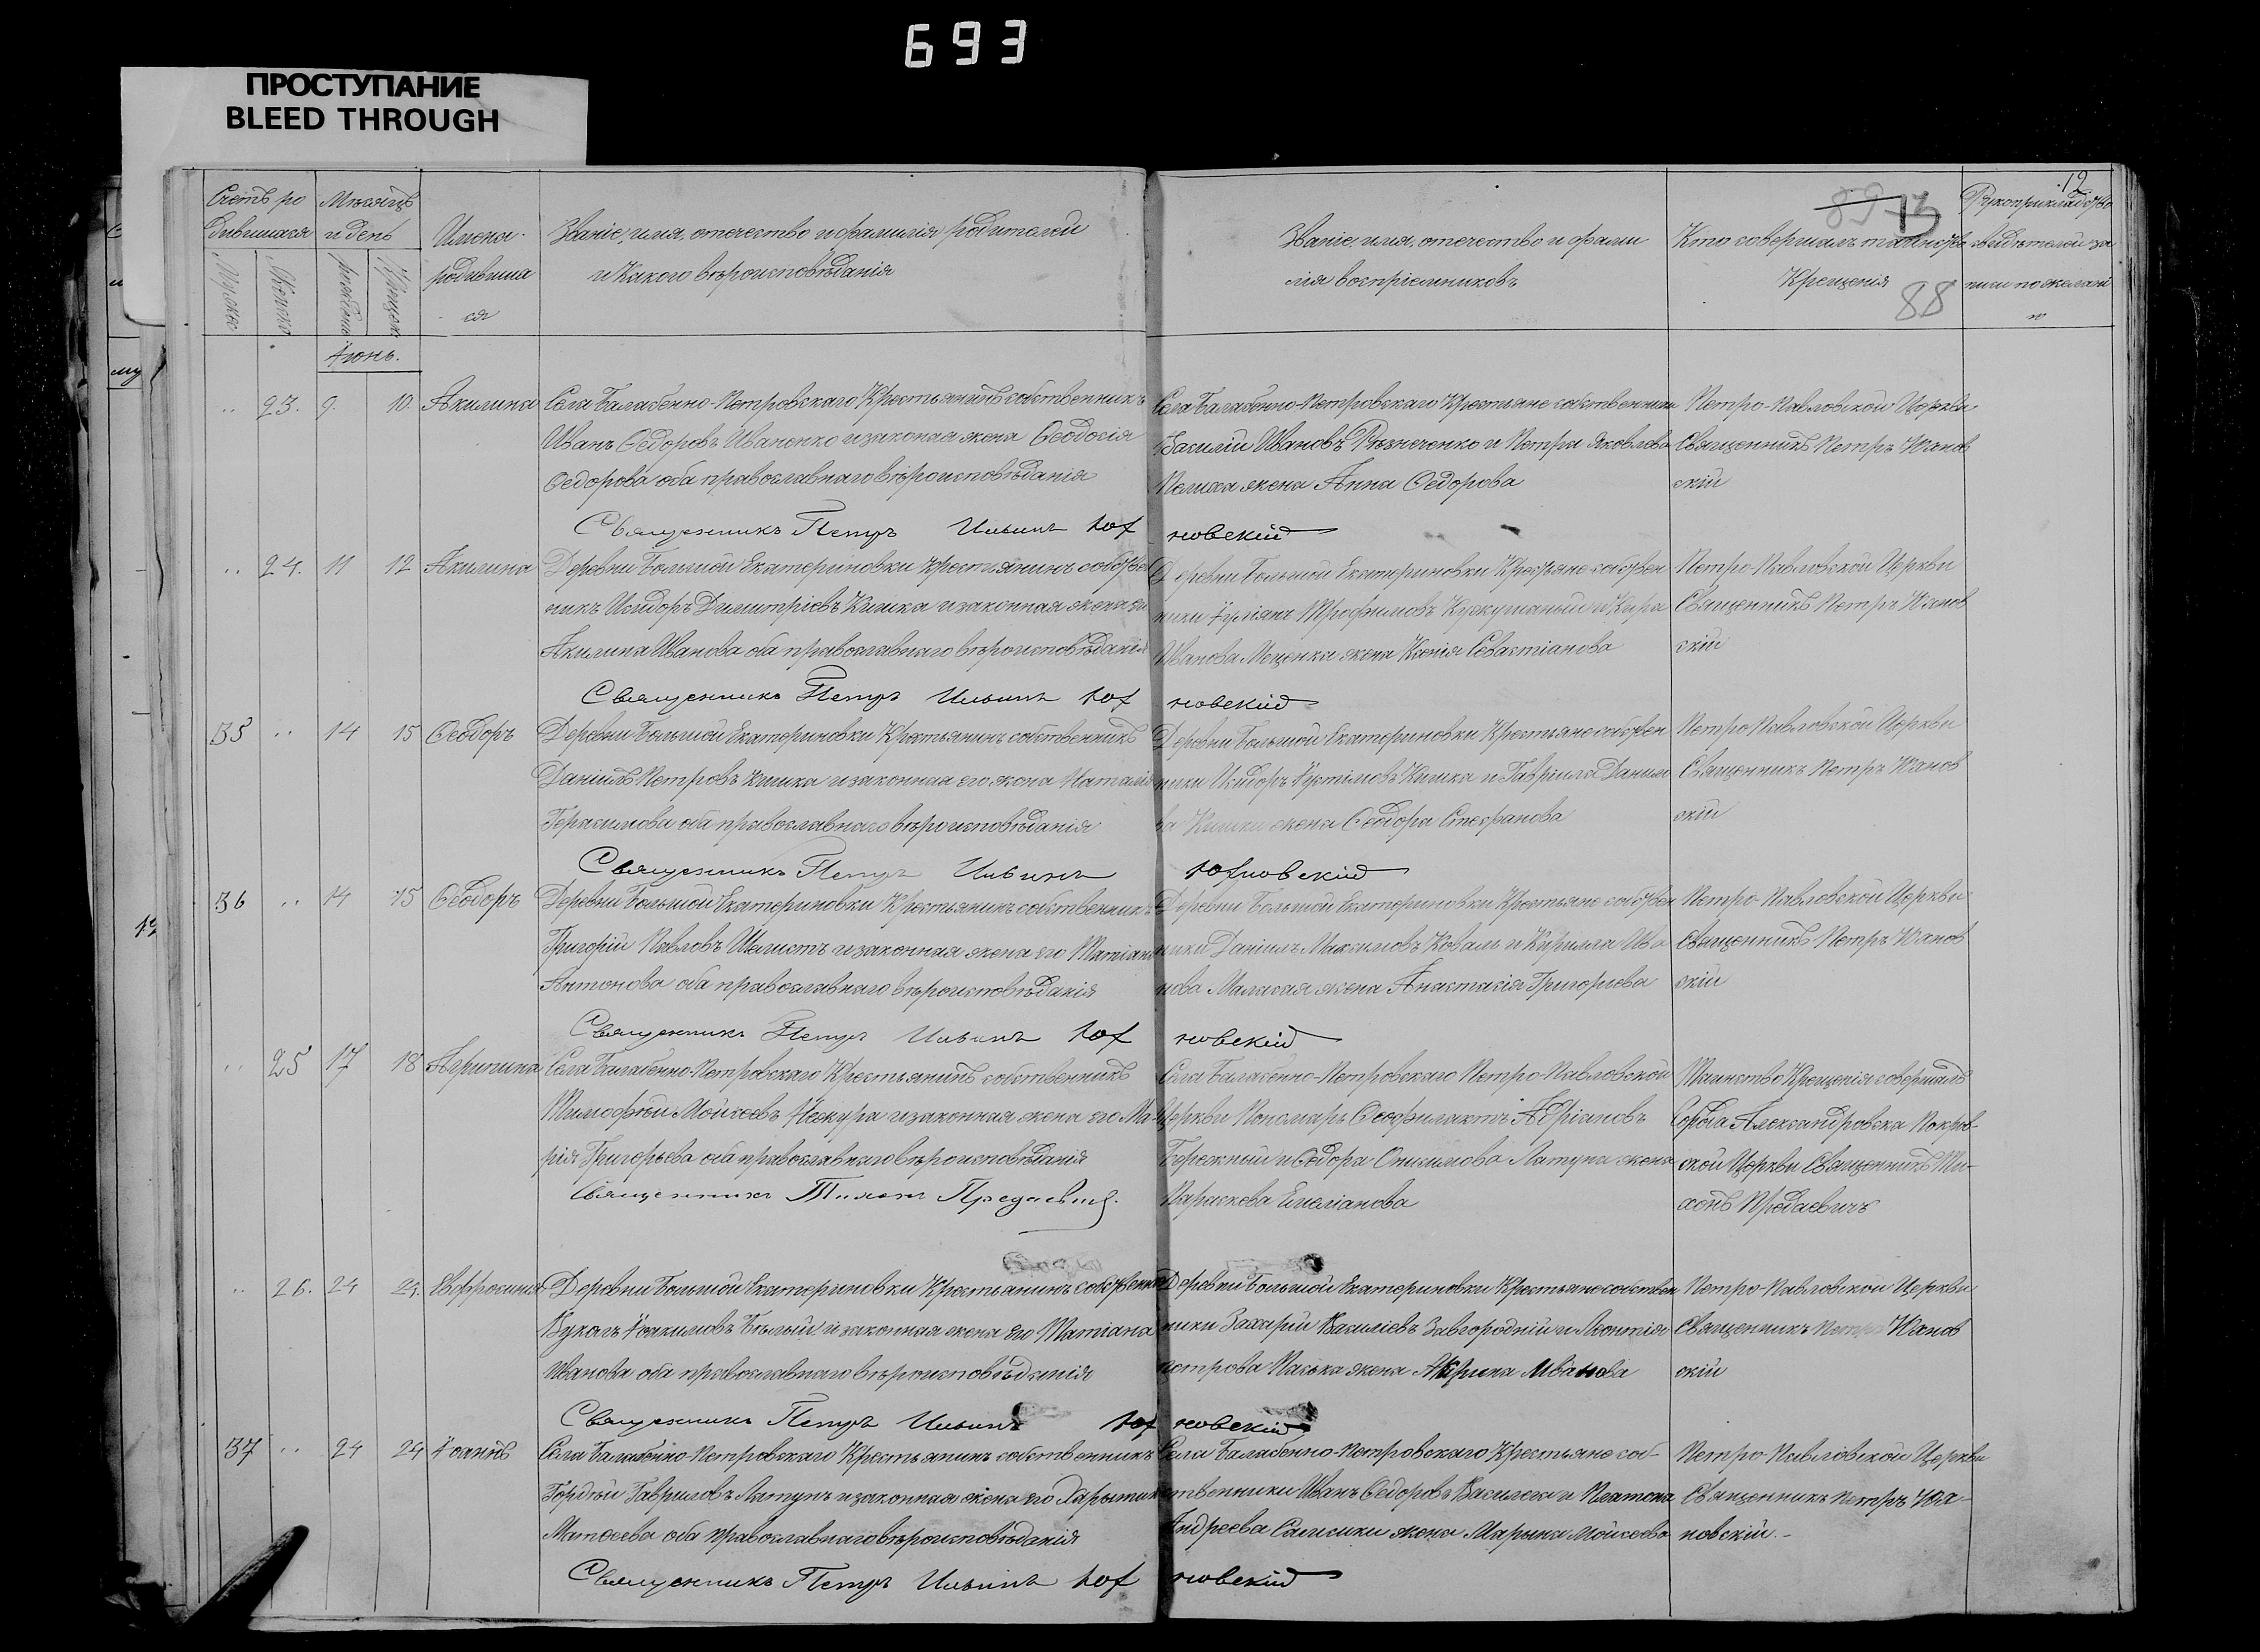 693
ПРОСТУПАНИЕ
BLEED THROUGH
12
89
13
88
Счетъ ро
дившихся
Мужеска
Женска
Мѣсяцъ
и день
рожденія
крещенія
Имена
родивших
ся
Званіе, имя, отечество и фамилія родителей
и какого вѣроисповѣданія
Званіе, имя, отечество и фами
лія воспріемниковъ
Кто совершалъ таинство
Крещенія
Рукоприкладство
свидѣтелей за
писи по желані
ю
Іюнь.
.. 23. 9. 10. Акилина
Села Балабенно-Петровскаго Крестьянинъ собственникъ
Иванъ Ѳедоровъ Иваненко и законная жена Ѳеодосія
Ѳедорова оба православнаго вѣроисповѣданія
Села Балабенно-Петровскаго Крестьяне собственники
Василій Ивановъ Рѣзниченко и Петра Яковлева
жена Анна Ѳедорова
Петро-Павловской Церкви
Священникъ Петръ Юханов
скій
Священникъ Петръ Ильинъ Юхновскій
.. 24. 11 12 Акилина
Деревни Большой Екатериновки Крестьянинъ собствен
никъ Исидоръ Димитріевъ Кишка и законная жена его
Акилина Иванова оба православнаго вѣроисповѣданія
Деревни Большой Екатериновки Крестьяне собствен
ники Трофимовъ и Кира
Иванова жена Ксенія Севастіанова
Петро-Павловской Церкви
Священникъ Петръ Юханов
скій
Священникъ Петръ Ильинъ Юхновскій
35 .. 14 15 Ѳеодоръ
Деревни Большой Екатериновки Крестьянинъ собственникъ
Даніилъ Петровъ Кишка и законная его жена Наталія
Герасимова оба православнаго вѣроисповѣданія
Деревни Большой Екатериновки Крестьяне собствен
ники Исидоръ Кишка и Гавріила Данило
ва Кишки жена Ѳеодора Стефанова
Петро Павловской Церкви
Священникъ Петръ Юханов
скій
Священникъ Петръ Ильинъ Юхновскій
36 .. 14 15 Ѳеодоръ
Деревни Большой Екатериновки Крестьянинъ собственникъ
Григорій Павловъ и законная жена его Татіана
Антонова оба православнаго вѣроисповѣданія
Деревни Большой Екатериновки Крестьяне собствен
ники Даніилъ Максимовъ Коваль и Кирилла Ива
нова жена Анастасія Григорьева
Петро-Павловской Церкви
Священникъ Петръ Юханов
скій
Священникъ Петръ Ильинъ Юхновскій
.. 25 17 18 Агрипина
Села Балабенно-Петровскаго Крестьянинъ собственникъ
Тимофей Мойсеевъ и законная жена его Ма-
рія Григорьева оба православнаго вѣроисповѣданія
Священникъ Тихонъ Предаевичъ.
Села Балабенно-Петровскаго Петро-Павловской
Церкви Пономарь Ѳеофилактъ Адріановъ
Бережный и Ѳедора Онисимова Латуна жена
Параскева Емеліанова
Таинство Крещенія совершалъ
Города Александровска Покров-
ской Церкви Священникъ Ти-
хонъ Предаевичъ
.. 26. 24 24. Евфросинія
Деревни Большой Екатериновки Крестьянинъ собственникъ
Вуколъ Іоакимовъ Бѣлый и законная жена его Татіана
Иванова оба православнаго вѣроисповѣданія
Деревни Большой Екатериновки Крестьяне собствен
ники Захарій Василіевъ Завгородній и Леонтія
петрова Паська жена Иванова
Петро-Павловской Церкви
Священникъ Петръ Юханов
скій
Священникъ Петръ Ильинъ Юхновскій
37 .. 24 24 Іоаннъ
Села Балабенно-Петровскаго Крестьянинъ собственникъ
Гордѣй Гавриловъ Латунъ и законная жена его Харытина
Матѳеева оба православнаго вѣроисповѣданія
Села Балабенно-Петровскаго Крестьяне соб-
ственники Иванъ Ѳедоровъ Василега и Платона
Андреева жена Марына Мойсеева
Петро-Павловской Церкви
Священникъ петръ Юха-
новскій.-
Священникъ Петръ Ильинъ Юхновскій